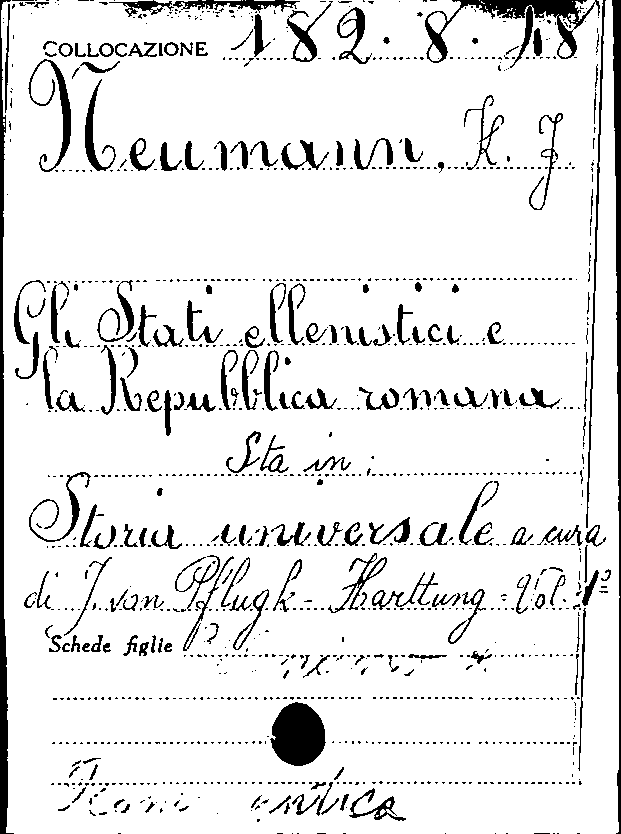 COLLOCAZIONE 182.8.18
Neumann, K. J.
Gli Stati ellenistici e
la Repubblica romana
Sta in:
Storia universale a cura
di J. von Pflugk-Harttung = Vol. 1º
Schede figlie
antica